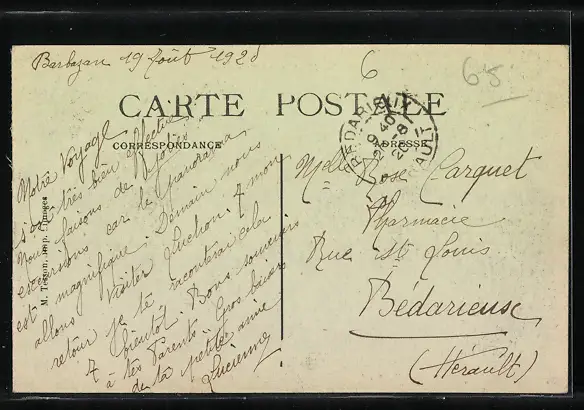 Barbazan 19 Août 1920
6
65
CARTE POSTALE
CORRESPONDANCE
ADRESSE
Notre Voyage
s'est très bien effectué.
Nous faisons de jolies
excursions car le panorama
est magnifique. Demain nous
allons visiter Luchon. A mon
retour je te raconterai cela
A bientôt. Bons souvenirs
à tes Parents. Gros baisers
de ta petite amie
Lucienne
M. Tesson, imp. Limoges
BEDARIEUX
HERAULT
Melle Rose Carquet
Pharmacie
Rue St Louis
Bédarieux
(Hérault)